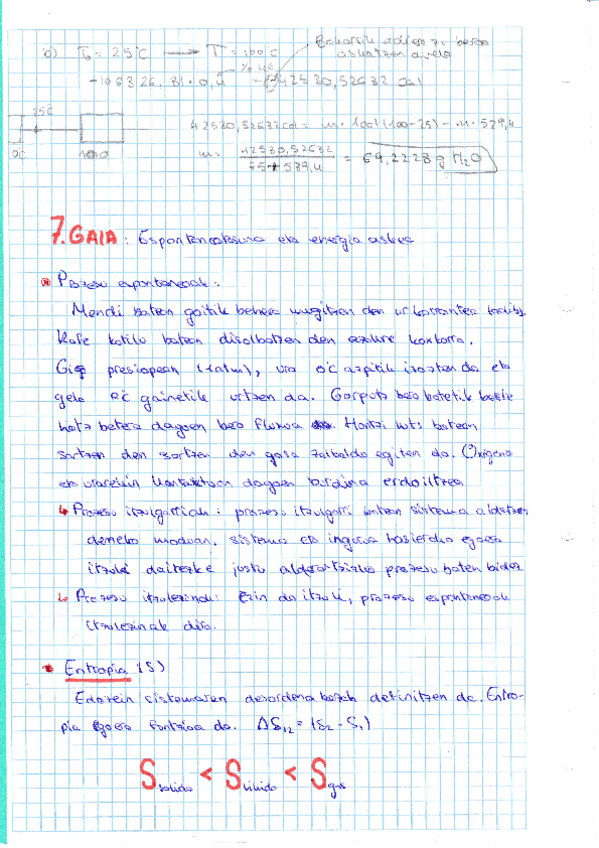 b) T₀ = 25°C → T = 100°C
-106326,31 · 0,4 = 42530,52632 cal
25°C
42530,52632 cal = m · 1cal (100-25) - m · 539,4
0°C
m = 42530,52632 / 75+539,4 = 69,2223 g H₂O
7. GAIA: Espontaneotasuna eta energia askea
Prozesu espontaneoak:
Mendi baten goitik behera mugitzen den ur korrontea
Kafe katilu batean disolbatzen den azukre koxkorra.
presiopean (1atm), ura 0°C azpitik izozten da eta
gelo 0°C gainetik urtzen da. Gorputz bero batetik beste
hotz batera dagoen bero fluxua. Hontzi huts batean
sortzen den sortzen den gasa zabaldo egiten da. Oxigeno
eta urarekin kontaktuan dagoen burdina erdoiltzea
↳ Prozesu itzulgarriak: prozesu itzulgarri batean sistema aldatzen
deneko moduan, sistema eta ingurua hasierako egoera
itzuli daitezke justu alderantzizko prozesu baten bidez
↳ Prozesu itzulezinak: Ezin da itzuli, prozesu espontaneoak
itzulezinak dira.
Entropia (S)
Edozein sistemaren desordena bezala definitzen da. Entro-
pia egoera funtzioa da. ΔS₁₂ = (S₂ - S₁)
S solido < S likido < S gas